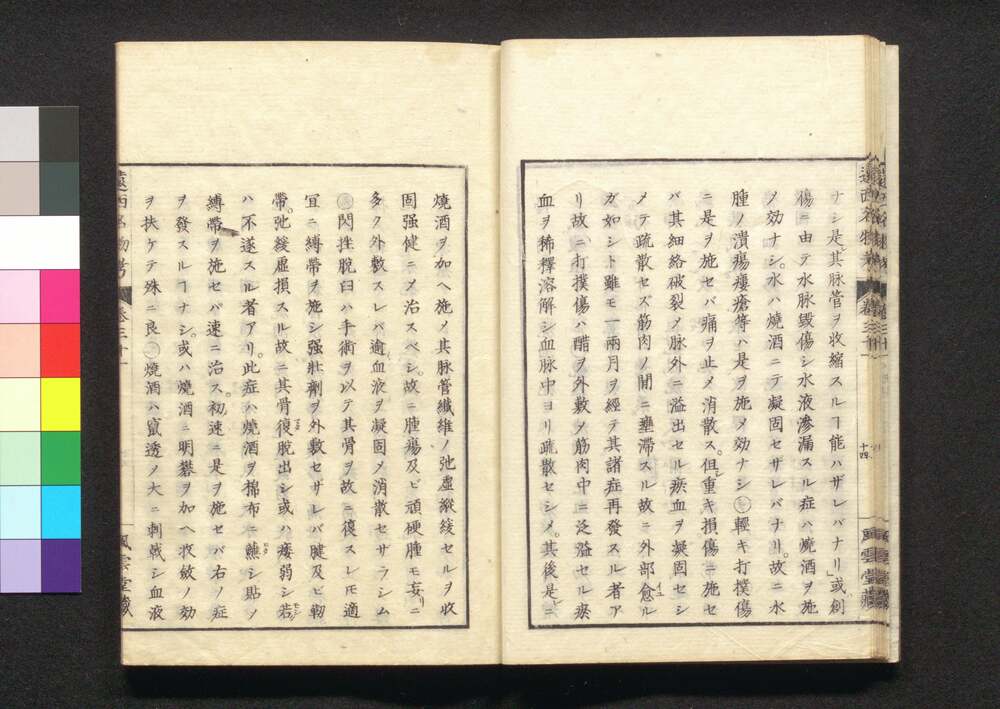 ナシ是其脉管ヲ收縮スルヿ能ハザレバナリ」或創
傷ニ由テ水脉毀傷シ水液滲漏スル症ハ燒酒ヲ施
メ効ナシ。水ハ燒酒ニテ凝固セザレバナリ。故ニ水
腫ノ潰瘍瘻瘡等ハ是ヲ施メ効ナシ㊆輕キ打撲傷
ニ是ヲ施セバ痛ヲ止メ消散ス。但シ重キ損傷ニ施セ
バ其細絡破裂メ脉外ニ溢出セル瘀血ヲ凝固セシ
メテ疏散セズ筋肉ノ間ニ壅滯スル故ニ外部愈ル
ガ如シト雖モ一兩月ヲ經テ其諸症再發スル者ア
リ故ニ打撲傷ハ醋ヲ外敷メ筋肉中ニ泛溢セル瘀
血ヲ稀釋溶解シ血脉中ヨリ疏散セシメ。其後是ニ
燒酒ヲ加ヘ施メ其脉管纖維ノ弛虛縱緩セルヲ收
固强健ニメ治スベシ。故ニ腫瘍及ビ頑硬腫モ妄リニ
多ク外敷スレバ適血液ヲ凝固メ消散セサラシム
㊇閃挫脫臼ハ手術ヲ以テ其骨ヲ故ニ復スレモ適
宜ニ縛帶ヲ施シ强壯劑ヲ外敷セザレバ腱及ビ靭
帶。弛緩虛損スル故ニ其骨復脫出シ或ハ痿弱シ若
ハ不遂スル者アリ。此症ハ燒酒ヲ揩布ニ蘸シ貼メ
縛帶ヲ施セバ速ニ治ス。初速ニ是ヲ施セバ右ノ症
ヲ發スルヿナシ。或ハ燒酒ニ明礬ヲ加ヘ收斂ノ効
ヲ扶ケテ殊ニ良㊈燒酒ハ竄透ノ大ニ刺戟シ血液
十四
風雲堂藏